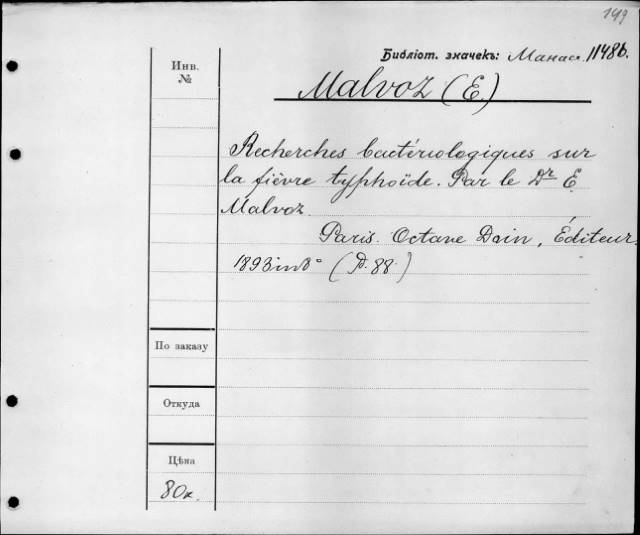 149
Библіот. значекъ: Манас. 1148b.
Инв.
№
Malvoz (E.)
Recherches bactériologiques sur
la fièvre typhoïde. Par le Dr E.
Malvoz.
Paris. Octave Doin, Éditeur.
1893 in 8° (P. 88.)
По заказу
Откуда
Цѣна
80к.